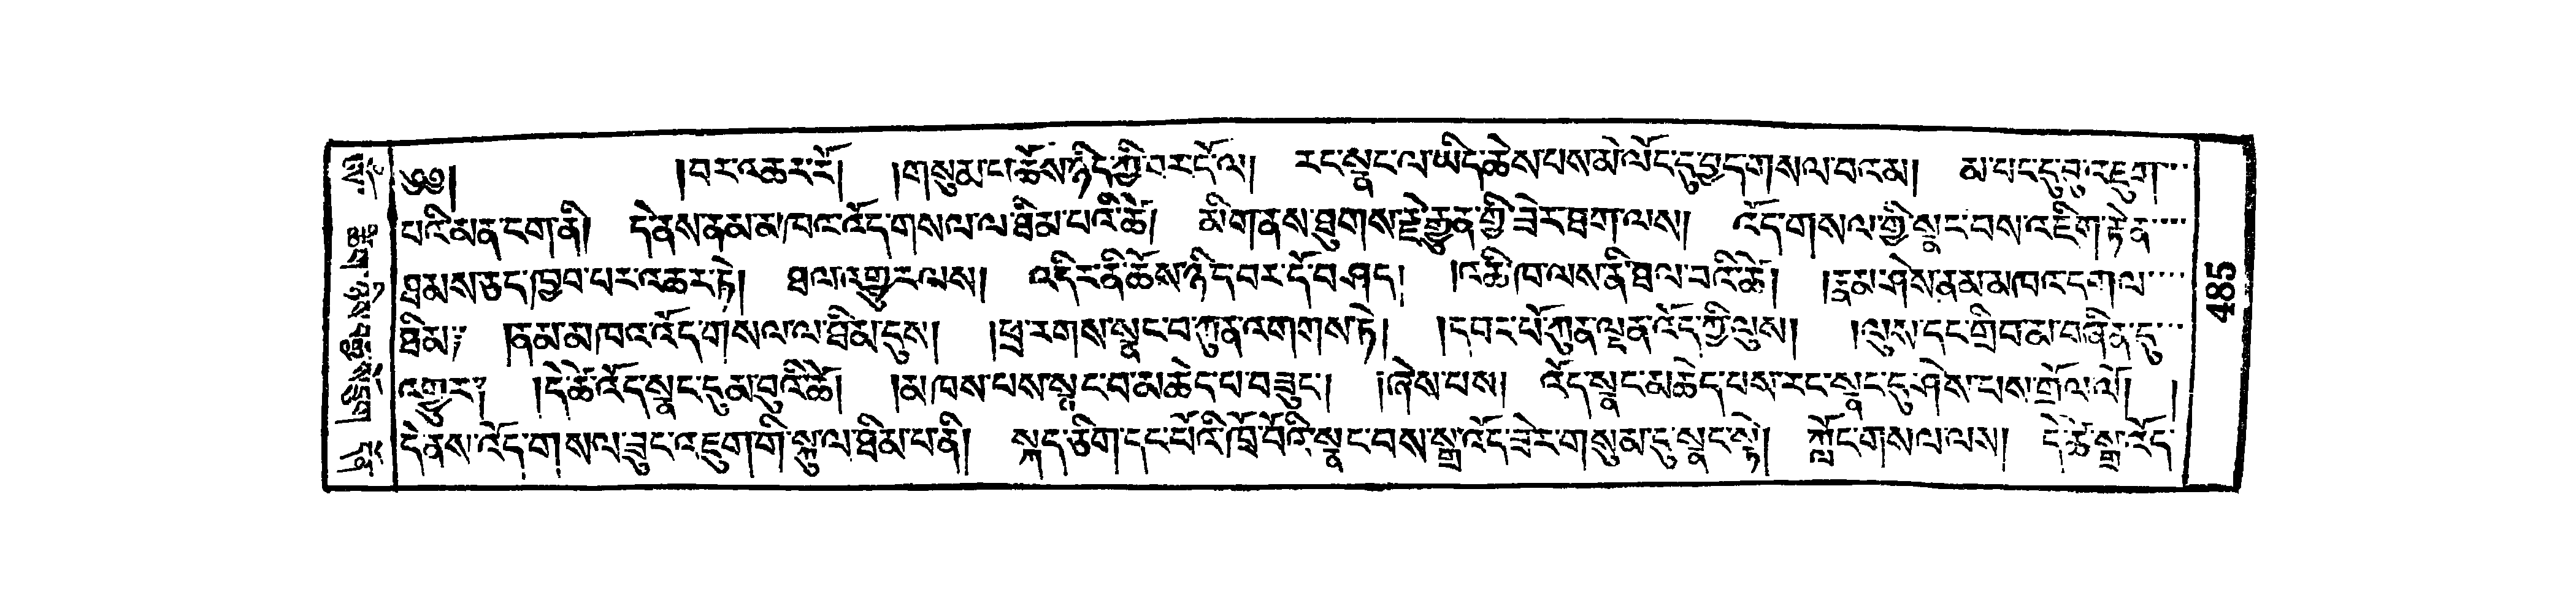 ༄༅། །བར་འཆར་རོ། །གསུམ་པ་ཆོས་ཉིད་ཀྱི་བར་དོ་ལ། རང་སྣང་ལ་ཡིད་ཆེས་པས་མེ་ལོང་དུ་བྱད་གསལ་བའམ། མ་པང་དུ་བུ་འཇུག་
པའི་མན་ངག་ནི། དེ་ནས་ནམ་མཁའ་འོད་གསལ་ལ་ཐིམ་པའི་ཚེ། མི་གནས་ཐུགས་རྗེ་རྒྱུན་གྱི་ཟེར་ཐག་ལས། འོད་གསལ་གྱི་སྣང་བས་འཇིག་རྟེན་
ཐམས་ཅད་ཁྱབ་པར་འཆར་ཏེ། ཐལ་འགྱུར་ལས། འདིར་ནི་ཆོས་ཉིད་བར་དོ་བཤད། །འཆི་ཁ་ལས་ནི་ཐལ་བའི་ཚེ། །རྣམ་ཤེས་ནམ་མཁའ་དག་ལ་
ཐིམ༔ །ནམ་མཁའ་འོད་གསལ་ལ་ཐིམ་དུས། །ཕྲ་རགས་སྣང་བ་ཀུན་འགགས་ཏེ། །དབང་པོ་ཀུན་ལྡན་འོད་ཀྱི་ལུས། །ལུས་དང་གྲིབ་མ་བཞིན་དུ་
འགྱུར༔ །དེ་ཚེ་འོད་སྣང་དུ་མ་བུའི་ཚེ། །མཁས་པས་སྣང་བ་མཆེད་པ་བཟུང་། །ཞེས་པས། འོད་སྣང་མཆེད་པས་རང་སྣང་དུ་ཤེས་པས་གྲོལ་ལོ། །
དེ་ནས་འོད་གསལ་ཟུང་འཇུག་གི་སྐུ་ལ་ཐིམ་པ་ནི། སྐད་ཅིག་དང་པོར་ཁྲོ་བོའི་སྣང་བས་སྒྲ་འོད་ཟེར་གསུམ་དུ་སྣང་སྟེ། ཀློང་གསལ་ལས། དེ་ཚེ་སྒྲ་འོད་
584